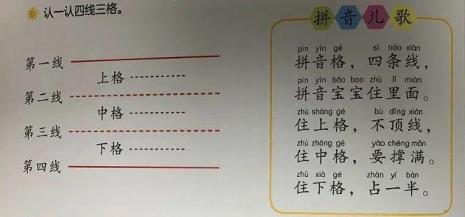 认一认四线三格。
第一线
上格
第二线
中格
第三线
下格
第四线
拼音儿歌
pīn yīn gé sì tiáo xiàn
拼音格，四条线，
pīn yīn bǎo bao zhù lǐ miàn
拼音宝宝住里面。
zhù shàng gé bù dǐng xiàn
住上格，不顶线，
zhù zhōng gé yào chēng mǎn
住中格，要撑满。
zhù xià gé zhàn yí bàn
住下格，占一半。